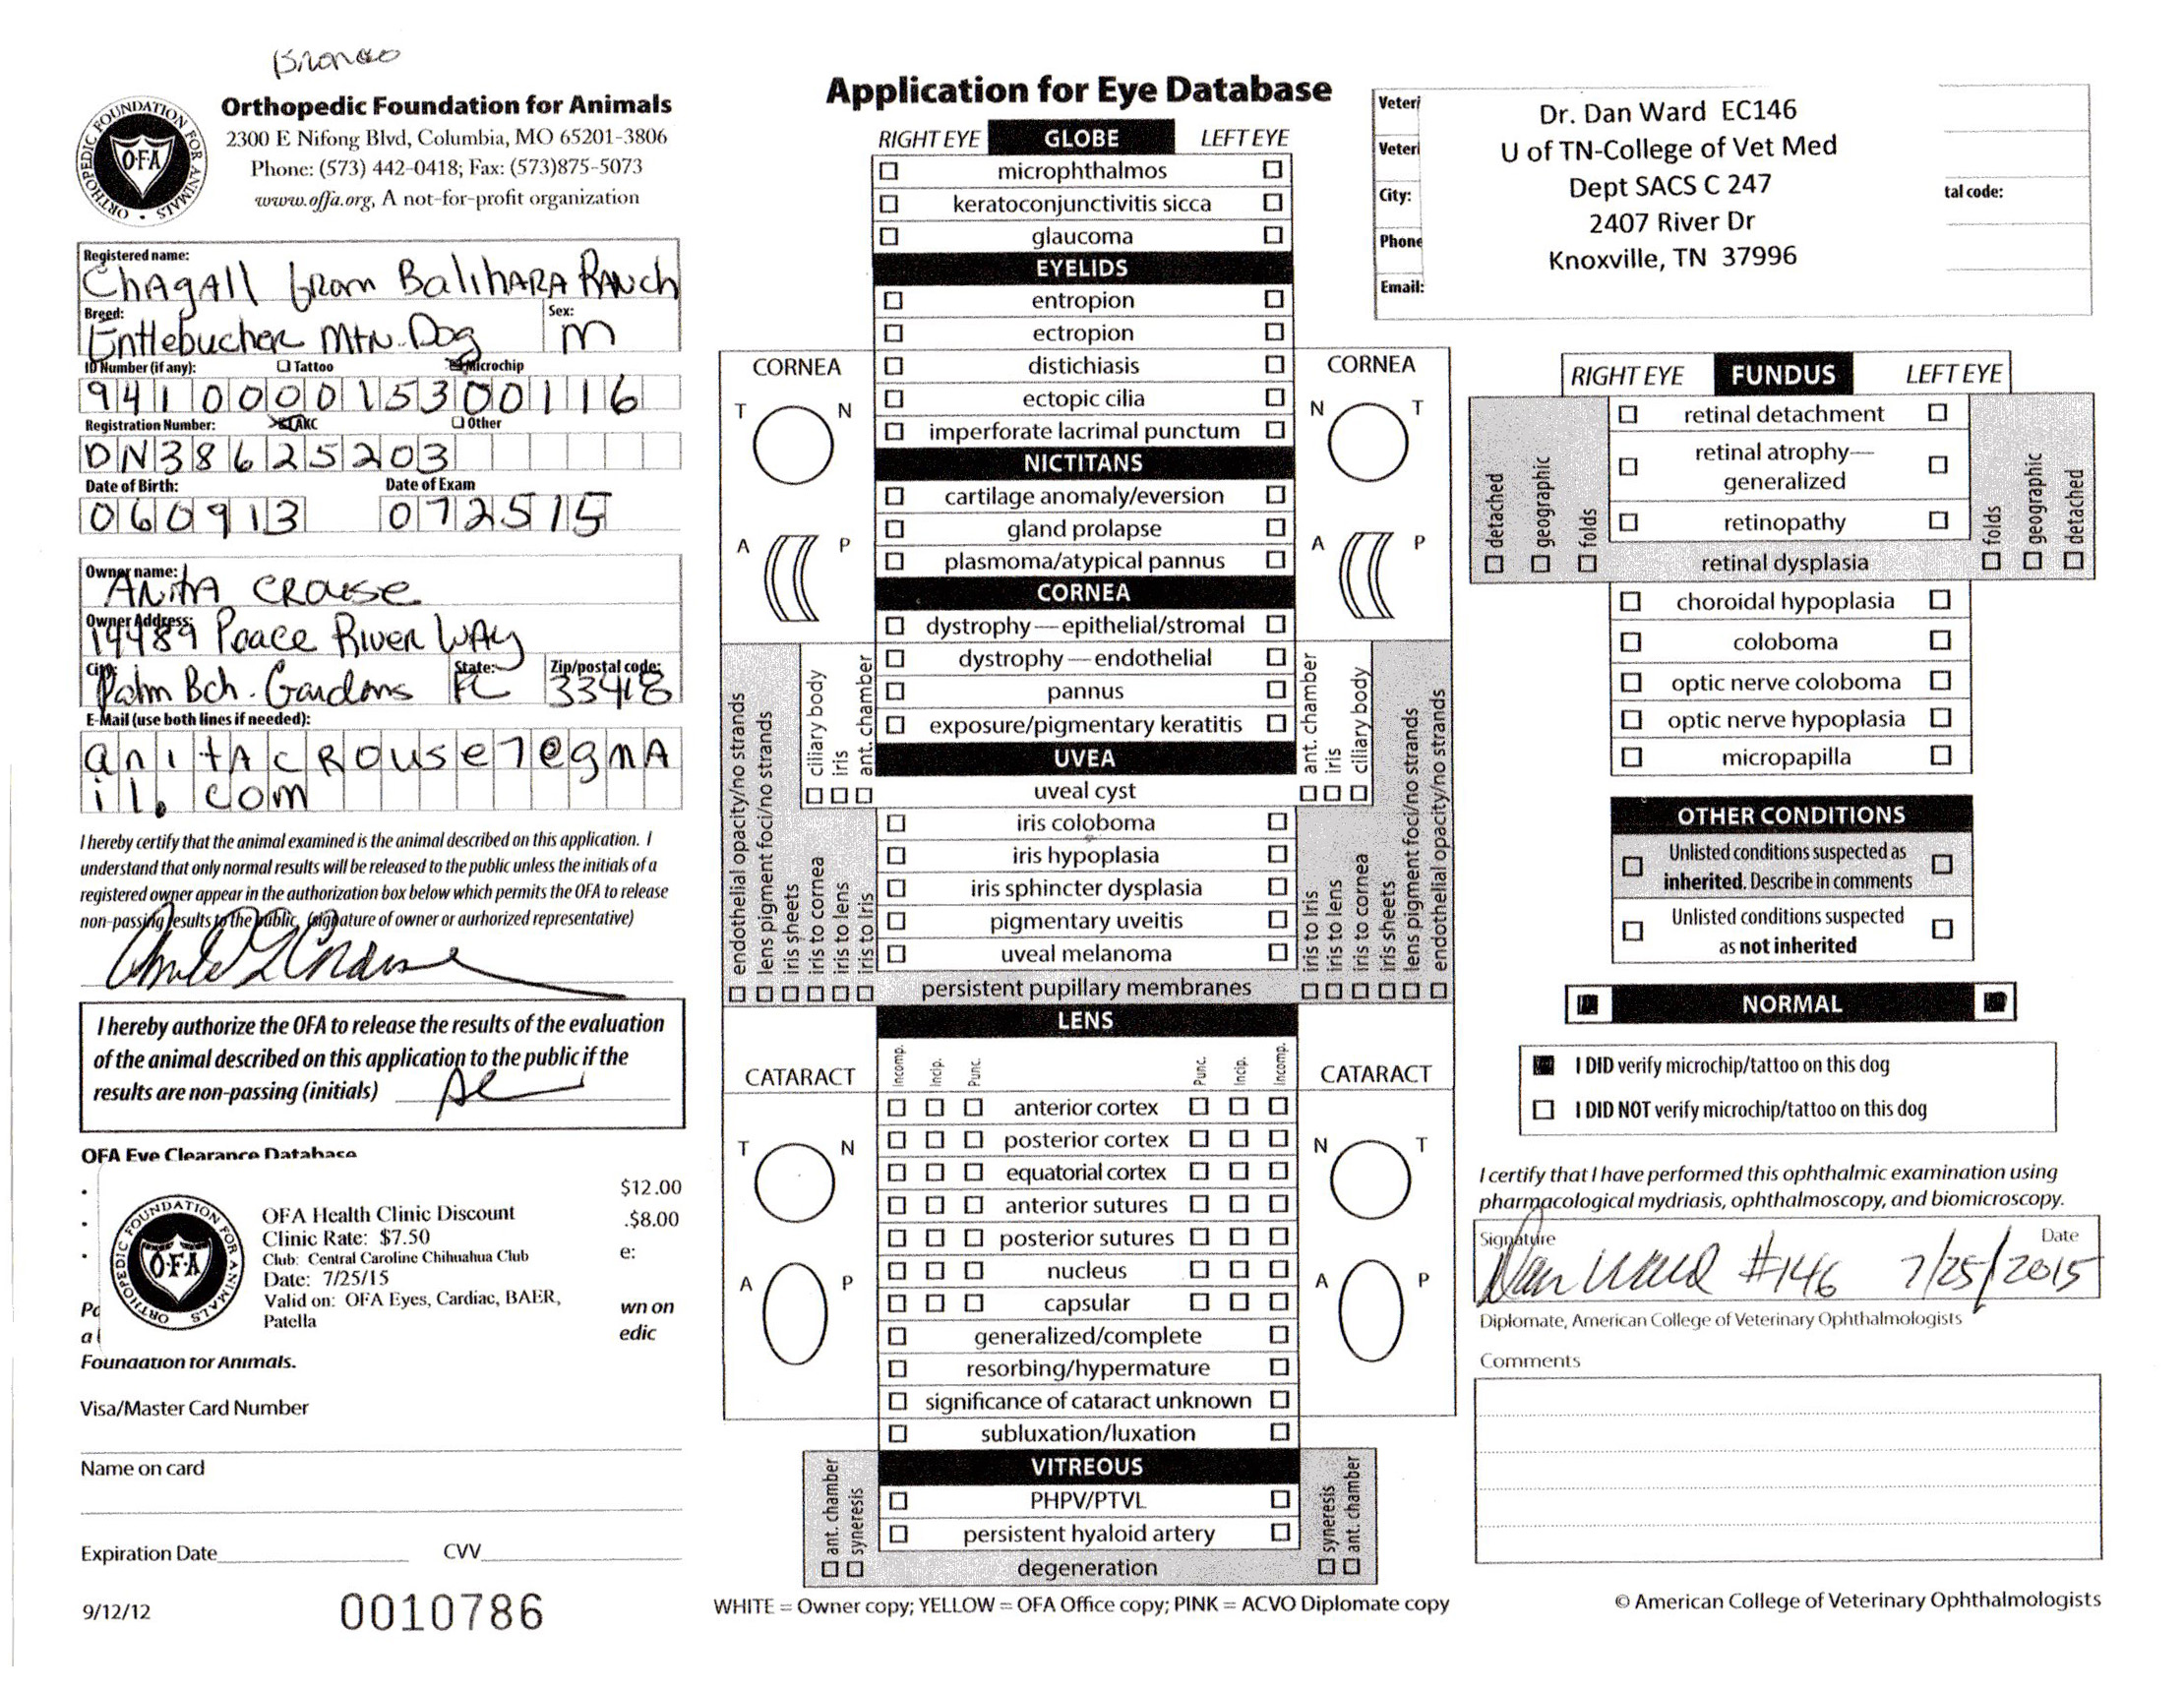 Bronco
Orthopedic Foundation for Animals
2300 E Nifong Blvd, Columbia, MO 65201-3806
Phone: (573) 442-0418; Fax: (573)875-5073
www.offa.org, A not-for-profit organization
ORTHOPEDIC FOUNDATION FOR ANIMALS
OFA
Registered name:
Chagall from Balihara Ranch
Breed:
Sex:
Entlebucher Mtn. Dog
M
ID Number (if any):
Tattoo
Microchip
941000015300116
Registration Number:
AKC
Other
DN38625203
Date of Birth:
Date of Exam
060913
072515
Owner name:
Anita Crouse
Owner Address:
Peace River Way
City:
State:
Zip/postal code:
Palm Bch. Gardens
FL
33418
E-Mail (use both lines if needed):
anitacrouse7@gma
il.com
I hereby certify that the animal examined is the animal described on this application. I
understand that only normal results will be released to the public unless the initials of a
registered owner appear in the authorization box below which permits the OFA to release
non-passing results to the public, (signature of owner or aurhorized representative)
I hereby authorize the OFA to release the results of the evaluation
of the animal described on this application to the public if the
results are non-passing (initials) AC
OFA Eye Clearance Database
$12.00
.$8.00
e:
ORTHOPEDIC FOUNDATION FOR ANIMALS
OFA
OFA Health Clinic Discount
Clinic Rate: $7.50
Club: Central Caroline Chihuahua Club
Date: 7/25/15
Valid on: OFA Eyes, Cardiac, BAER,
Patella
wn on
edic
Foundation for Animals.
Visa/Master Card Number
Name on card
Expiration Date
CVV
9/12/12
0010786
Application for Eye Database
RIGHT EYE
GLOBE
LEFT EYE
microphthalmos
keratoconjunctivitis sicca
glaucoma
EYELIDS
entropion
ectropion
distichiasis
ectopic cilia
imperforate lacrimal punctum
NICTITANS
cartilage anomaly/eversion
gland prolapse
plasmoma/atypical pannus
CORNEA
dystrophy—epithelial/stromal
dystrophy—endothelial
pannus
exposure/pigmentary keratitis
UVEA
uveal cyst
iris coloboma
iris hypoplasia
iris sphincter dysplasia
pigmentary uveitis
uveal melanoma
persistent pupillary membranes
CORNEA
T
N
A
P
CORNEA
N
T
A
P
endothelial opacity/no strands
lens pigment foci/no strands
iris sheets
iris to cornea
iris to lens
iris to Iris
ciliary body
iris
ant. chamber
ant. chamber
iris
ciliary body
iris to Iris
iris to lens
iris to cornea
iris sheets
lens pigment foci/no strands
endothelial opacity/no strands
LENS
Incomp.
Incip.
Punc.
Punc.
Incip.
Incomp.
anterior cortex
posterior cortex
equatorial cortex
anterior sutures
posterior sutures
nucleus
capsular
generalized/complete
resorbing/hypermature
significance of cataract unknown
subluxation/luxation
CATARACT
T
N
A
P
CATARACT
N
T
A
P
VITREOUS
PHPV/PTVL
persistent hyaloid artery
degeneration
ant. chamber
syneresis
syneresis
ant. chamber
WHITE = Owner copy; YELLOW = OFA Office copy; PINK = ACVO Diplomate copy
Veteri
Veteri
City:
Phone
Email:
tal code:
Dr. Dan Ward EC146
U of TN-College of Vet Med
Dept SACS C 247
2407 River Dr
Knoxville, TN 37996
RIGHT EYE
FUNDUS
LEFT EYE
retinal detachment
retinal atrophy—
generalized
retinopathy
retinal dysplasia
detached
geographic
folds
folds
geographic
detached
choroidal hypoplasia
coloboma
optic nerve coloboma
optic nerve hypoplasia
micropapilla
OTHER CONDITIONS
Unlisted conditions suspected as
inherited. Describe in comments
Unlisted conditions suspected
as not inherited
NORMAL
I DID verify microchip/tattoo on this dog
I DID NOT verify microchip/tattoo on this dog
I certify that I have performed this ophthalmic examination using
pharmacological mydriasis, ophthalmoscopy, and biomicroscopy.
Signature
Date
Dan Ward #146 7/25/2015
Diplomate, American College of Veterinary Ophthalmologists
Comments
© American College of Veterinary Ophthalmologists